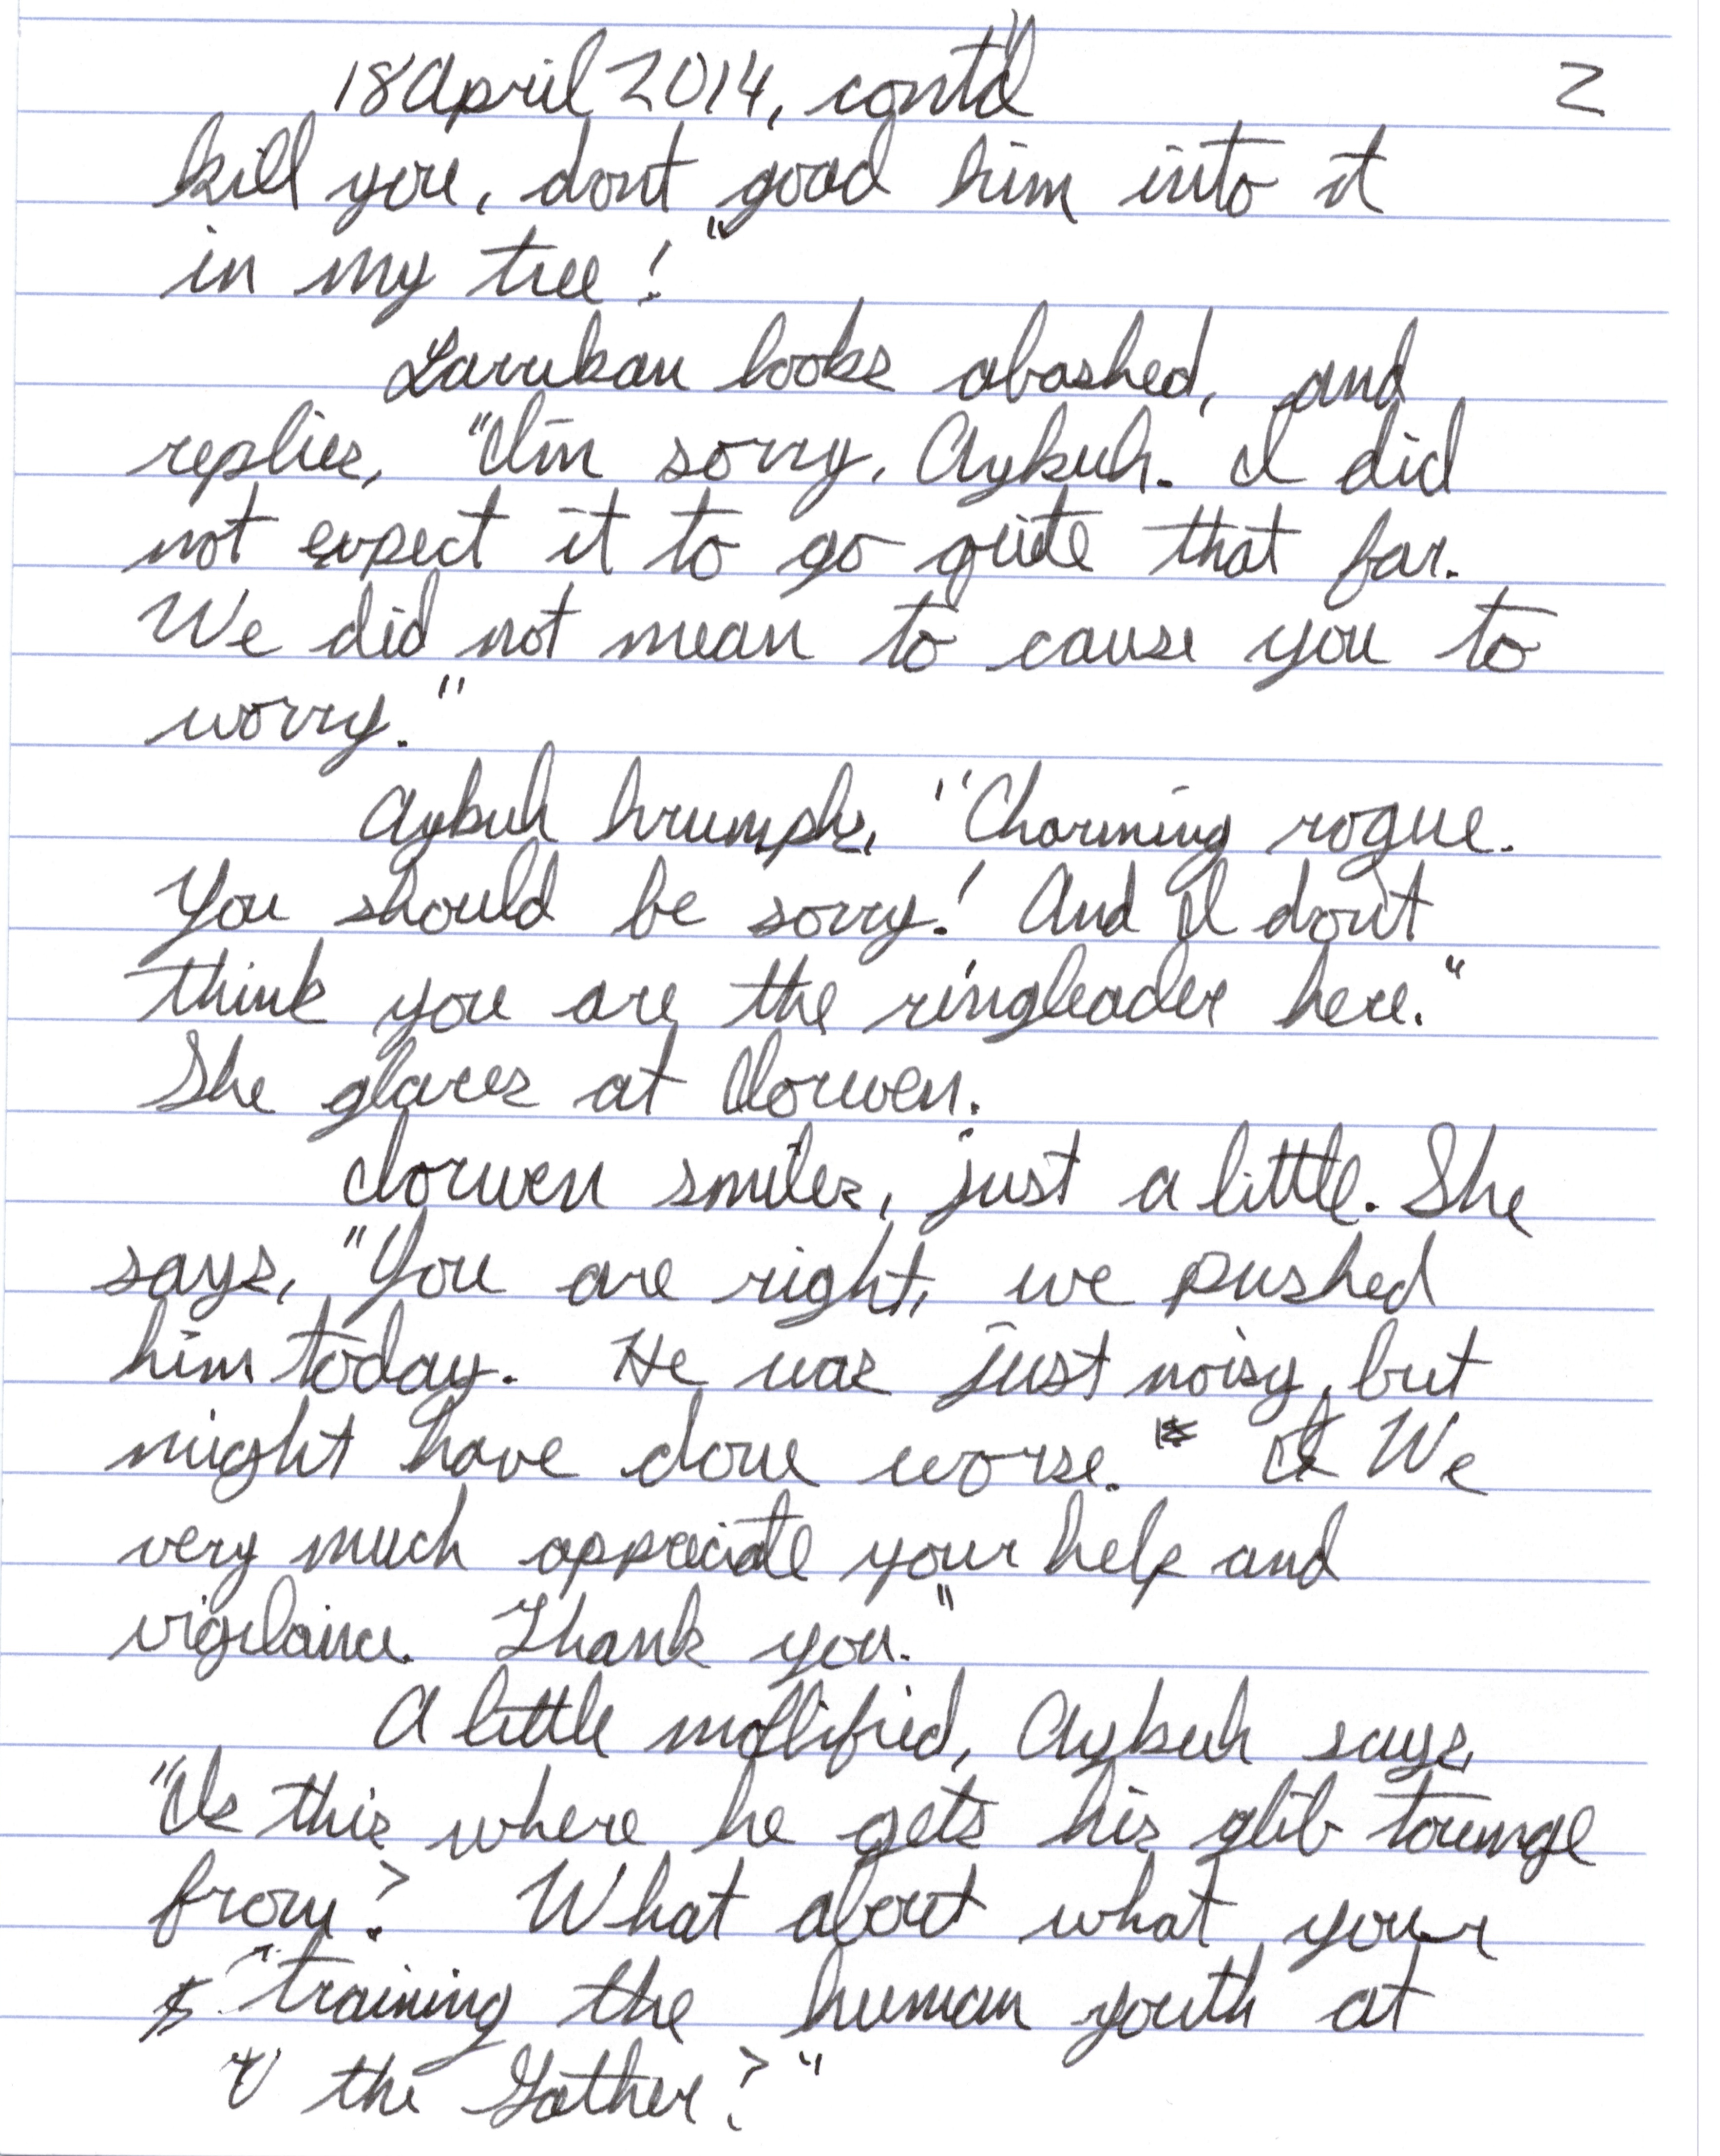 18 April 2014, contd 2
kill you, don't goad him into it
in my tree!"
Larukan looks abashed, and
replies, "I'm sorry, Aykuh. I did
not expect it to go quite that far.
We did not mean to cause you to
worry."
Aykuh hrumphs, "Charming rogue.
You should be sorry! And I don't
think you are the ringleader here."
She glares at Iorwen.
Iorwen smiles, just a little. She
says, "You are right, we pushed
him today. He was just noisy, but
might have done worse. We
very much appreciate your help and
vigilance. Thank you."
A little mollified, Aykuh says,
"Is this where he gets his glib tounge
from? What about what your
training the human youth at
the Gather?"